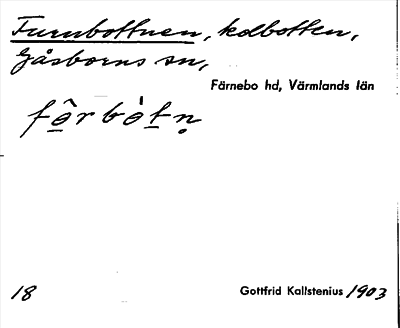 Furubottnen, kolbotten,
Gåsborns sn,
Färnebo hd, Värmlands län
18
Gottfrid Kallstenius 1903